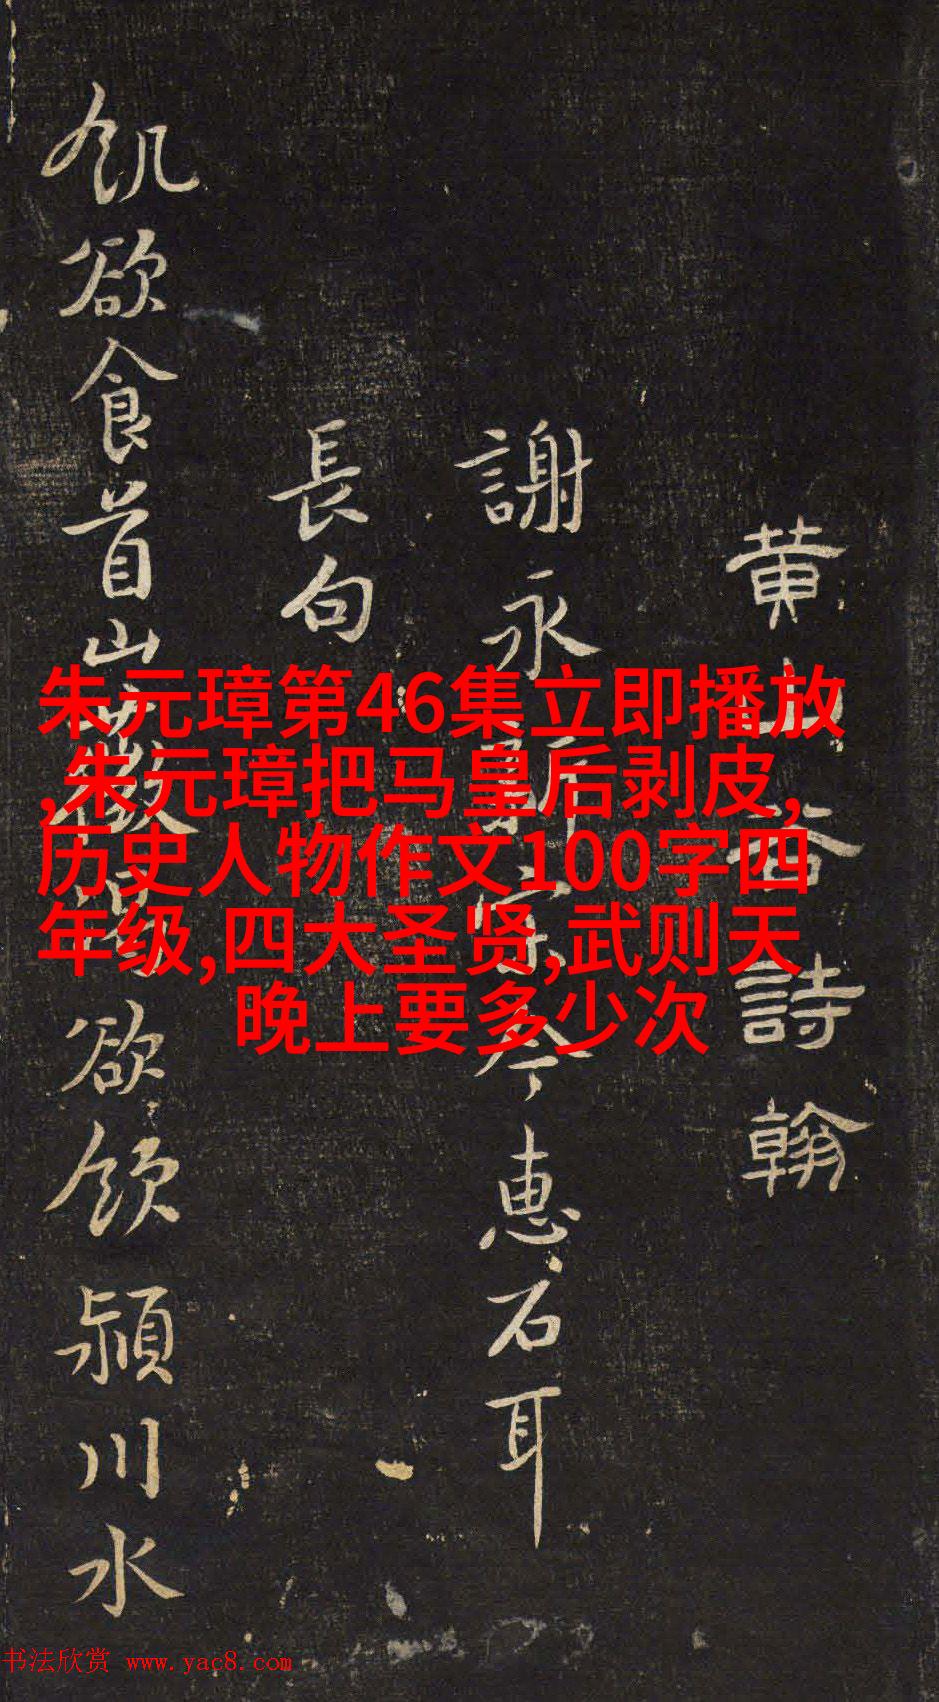 黄山谷詩翰
謝永新宗令惠石耳
長句
飢欲食首山薇渴欲飲潁川水
朱元璋第46集立即播放
,朱元璋把马皇后剥皮,
历史人物作文100字四
年级,四大圣贤,武则天
晚上要多少次
书法欣赏 www.yac8.com